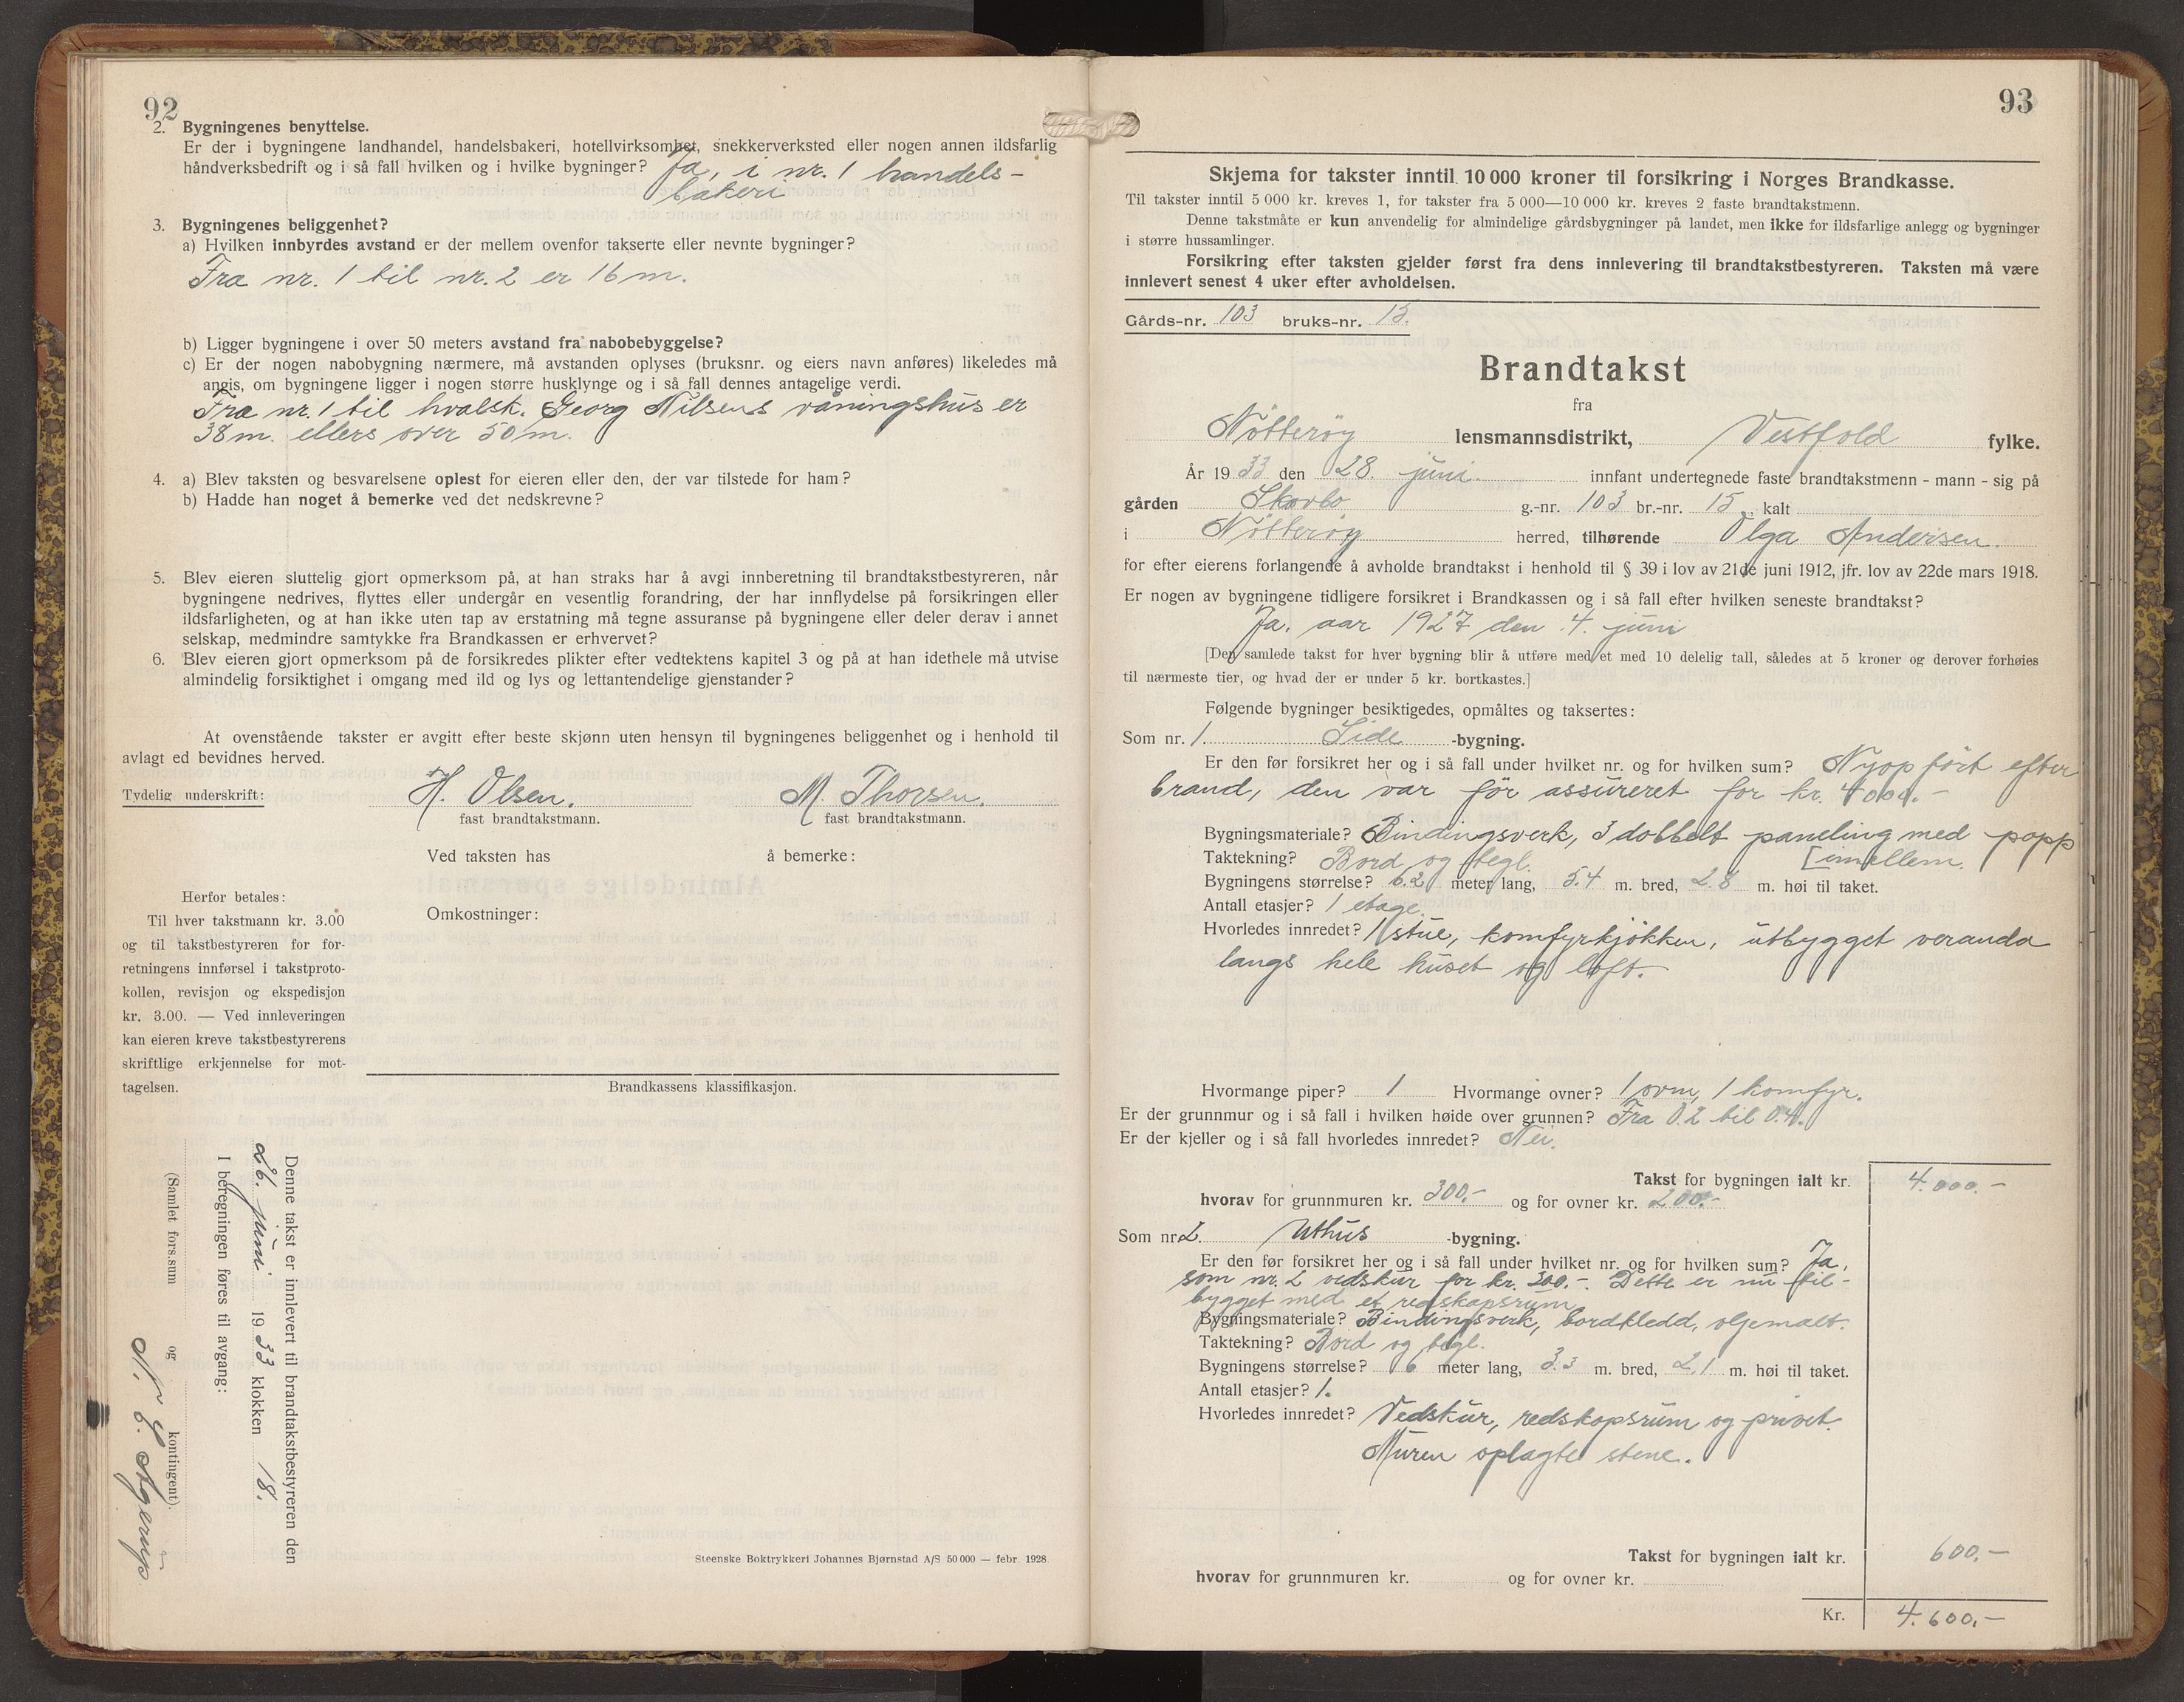 92
2. Bygningenes benyttelse.
Er der i bygningene landhandel, handelsbakeri, hotellvirksomhet, snekkerverksted eller nogen annen ildsfarlig
håndverksbedrift og i så fall hvilken og i hvilke bygninger? Ja, i nr. 1 handels-
bakeri
3. Bygningenes beliggenhet?
a) Hvilken innbyrdes avstand er der mellem ovenfor takserte eller nevnte bygninger?
Fra nr. 1 til nr. 2 er 16 m.
b) Ligger bygningene i over 50 meters avstand fra nabobebyggelse?
c) Er der nogen nabobygning nærmere, må avstanden oplyses (bruksnr. og eiers navn anføres) likeledes må
angis, om bygningene ligger i nogen større husklynge og i så fall dennes antagelige verdi.
Fra nr. 1 til hvalsk. Georg Nilsens våningshus er
38 m. ellers over 50 m.
4. a) Blev taksten og besvarelsene oplest for eieren eller den, der var tilstede for ham?
b) Hadde han noget å bemerke ved det nedskrevne?
5. Blev eieren sluttelig gjort opmerksom på, at han straks har å avgi innberetning til brandtakstbestyreren, når
bygningene nedrives, flyttes eller undergår en vesentlig forandring, der har innflydelse på forsikringen eller
ildsfarligheten, og at han ikke uten tap av erstatning må tegne assuranse på bygningene eller deler derav i annet
selskap, medmindre samtykke fra Brandkassen er erhvervet?
6. Blev eieren gjort opmerksom på de forsikredes plikter efter vedtektens kapitel 3 og på at han idethele må utvise
almindelig forsiktighet i omgang med ild og lys og lettantendelige gjenstander?
At ovenstående takster er avgitt efter beste skjønn uten hensyn til bygningenes beliggenhet og i henhold til
avlagt ed bevidnes herved.
Tydelig underskrift: H. Olsen. M. Thorsen.
fast brandtakstmann. fast brandtakstmann.
Ved taksten has å bemerke:
Omkostninger:
Herfor betales:
Til hver takstmann kr. 3.00
og til takstbestyreren for for-
retningens innførsel i takstproto-
kollen, revisjon og ekspedisjon
kr. 3.00. — Ved innleveringen
kan eieren kreve takstbestyrerens
skriftlige erkjennelse for mot-
tagelsen.
Brandkassens klassifikasjon.
Denne takst er innlevert til brandtakstbestyreren den
26. juni 1933 klokken 18.
I beregningen føres til avgang:
(Samlet fors.sum og kontingent).
Agerup
Steenske Boktrykkeri Johannes Bjørnstad A/S 50 000 — febr. 1928
93
Skjema for takster inntil 10 000 kroner til forsikring i Norges Brandkasse.
Til takster inntil 5 000 kr. kreves 1, for takster fra 5 000—10 000 kr. kreves 2 faste brandtakstmenn.
Denne takstmåte er kun anvendelig for almindelige gårdsbygninger på landet, men ikke for ildsfarlige anlegg og bygninger
i større hussamlinger.
Forsikring efter taksten gjelder først fra dens innlevering til brandtakstbestyreren. Taksten må være
innlevert senest 4 uker efter avholdelsen.
Gårds-nr. 103 bruks-nr. 15.
Brandtakst
fra
Nötteröy lensmannsdistrikt, Vestfold fylke.
År 1933 den 28. juni. innfant undertegnede faste brandtakstmenn - mann - sig på
gården Skovbo g.-nr. 103 br.-nr. 15., kalt
i Nötteröy herred, tilhørende Olga Andersen.
for efter eierens forlangende å avholde brandtakst i henhold til § 39 i lov av 21de juni 1912, jfr. lov av 22de mars 1918.
Er nogen av bygningene tidligere forsikret i Brandkassen og i så fall efter hvilken seneste brandtakst?
Ja. aar 1927 den 4. juni
[Den samlede takst for hver bygning blir å utføre med et med 10 delelig tall, således at 5 kroner og derover forhøies
til nærmeste tier, og hvad der er under 5 kr. bortkastes.]
Følgende bygninger besiktigedes, opmåltes og taksertes:
Som nr. 1. Side -bygning.
Er den før forsikret her og i så fall under hvilket nr. og for hvilken sum? Nyopfört efter
brand, den var för assureret for kr. 4000.-
Bygningsmateriale? Bindingsverk, 3 dobbelt paneling med papp
Taktekning? Bord og tegl. [imellem.
Bygningens størrelse? 6.2 meter lang, 5.4 m. bred, 2.8 m. høi til taket.
Antall etasjer? 1 etage.
Hvorledes innredet? 1 stue, komfyrkjökken, utbygget veranda
langs hele huset og loft.
Hvormange piper? 1 Hvormange ovner? 1 ovn, 1 komfyr.
Er der grunnmur og i så fall i hvilken høide over grunnen? Fra 0.2 til 0.4.
Er der kjeller og i så fall hvorledes innredet? Nei.
Takst for bygningen ialt kr. 4.000.-
hvorav for grunnmuren kr. 300.- og for ovner kr. 200.-
Som nr. 2. Uthus -bygning.
Er den før forsikret her og i så fall under hvilket nr. og for hvilken sum? Ja,
som nr. 2 vedskur for kr. 300.-. Dette er nu til-
bygget med et redskapsrum
Bygningsmateriale? Bindingsverk, bordkledd, oljemalt.
Taktekning? Bord og tegl.
Bygningens størrelse? 6 meter lang, 3.3 m. bred, 2.1 m. høi til taket.
Antall etasjer? 1.
Hvorledes innredet? Vedskur, redskapsrum og privet.
Muren oplagte stene.
Takst for bygningen ialt kr. 600.-
hvorav for grunnmuren kr. og for ovner kr.
Kr. 4.600.-